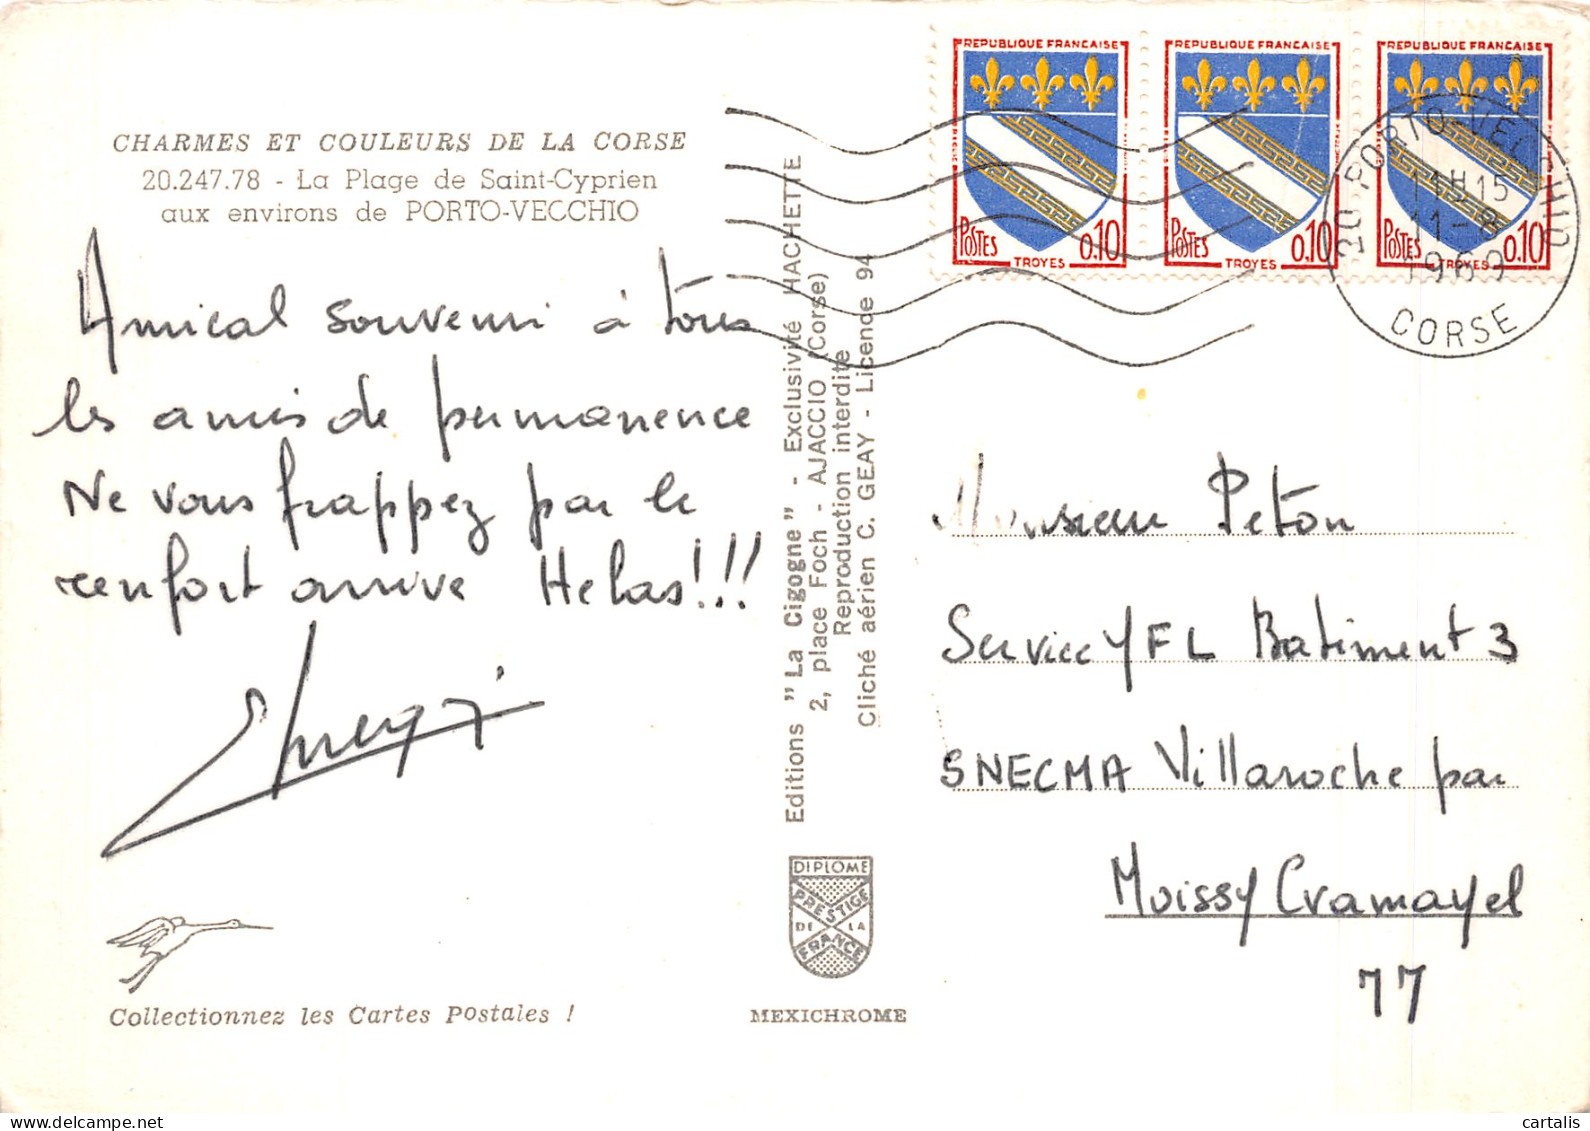 CHARMES ET COULEURS DE LA CORSE
20.247.78 - La Plage de Saint-Cyprien
aux environs de PORTO-VECCHIO
Amical souvenir à tous
les amis de permanence
Ne vous frappez par le
renfort arrive Helas!!!
Collectionnez les Cartes Postales !
Editions "La Cigogne" - Exclusivité HACHETTE
2, place Foch - AJACCIO (Corse)
Reproduction interdite
Cliché aérien C. GEAY - Licence 94
DIPLOME
PRESTIGE
DE LA
FRANCE
MEXICHROME
REPUBLIQUE FRANCAISE
POSTES
0,10
TROYES
REPUBLIQUE FRANCAISE
POSTES
0,10
TROYES
REPUBLIQUE FRANCAISE
POSTES
0,10
TROYES
20 PORTO-VECCHIO
11H15
11-8
1969
CORSE
Monsieur Peton
Service YFL Batiment 3
SNECMA Villaroche par
Moissy Cramayel
77
cartalis